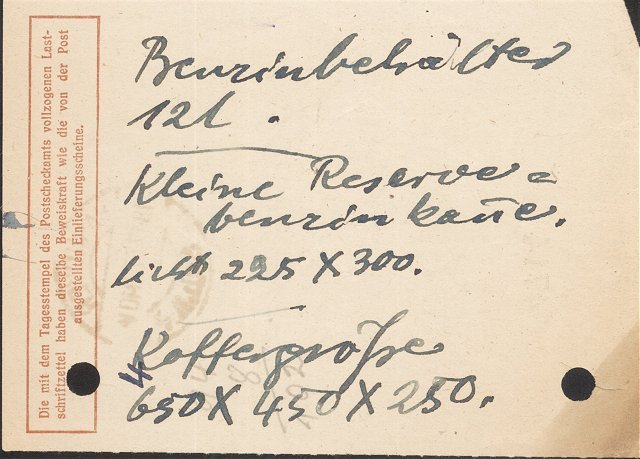 Die mit dem Tagesstempel des Postscheckamts vollzogenen Last-
schriftzettel haben dieselbe Beweiskraft wie die von der Post
ausgestellten Einlieferungsscheine.
Benzinbehälter
12 l.
Kleine Reserve=
benzinkanne.
licht 225 X 300.
Koffergröße
4
650 X 450 X 250.